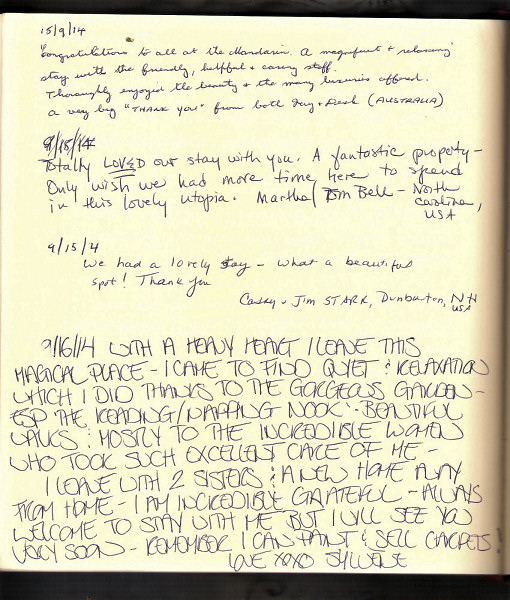 15/9/14
Congratulations to all at the Mandarin. A magnificent & relaxing
stay with the friendly, helpful & caring staff.
Thoroughly enjoyed the beauty & the many luxuries offered.
A very big "THANK YOU" from both Jay & (AUSTRALIA)
9/15/14
Totally LOVED our stay with you. A fantastic property -
Only wish we had more time here to spend
in this lovely utopia. Martha / Tom Bell - North
Carolina,
USA
9/15/4
We had a lovely stay - what a beautiful
spot! Thank you
& Jim STARR, Dunbarton, NH
USA
9/16/14 WITH A HEAVY HEART I LEAVE THIS
MAGICAL PLACE - I CAME TO FIND QUIET & RELAXATION
WHICH I DID THANKS TO THE GORGEOUS GARDEN -
ESP THE READING/NAPPING NOOK - BEAUTIFUL
WALKS & MOSTLY TO THE INCREDIBLE WOMEN
WHO TOOK SUCH EXCELLENT CARE OF ME -
I LEAVE WITH 2 SISTERS & A NEW HOME AWAY
FROM HOME - I AM INCREDIBLY GRATEFUL - ALWAYS
WELCOME TO STAY WITH ME BUT I WILL SEE YOU
VERY SOON - REMEMBER I CAN PAINT & SELL CARPETS!
LOVE XOXO SYLVENE